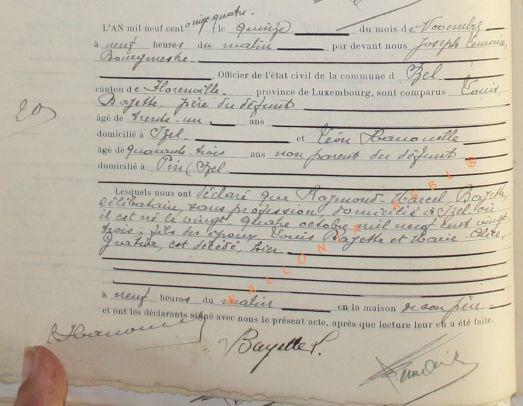 vingt-quatre
L'AN mil neuf cent, le quinze du mois de Novembre
à neuf heures du matin par devant nous Joseph Lemaire,
Bourgmestre
Officier de l'état civil de la commune d'Izel
canton de Florenville province de Luxembourg, sont comparus Louis
Bayette, père du défunt
20
âgé de trente-un ans
domicilié à Izel et Léon Hanouille
âgé de quarante-trois ans non parent du défunt
domicilié à Pin (Izel
Lesquels nous ont déclaré que Raymond-Marcel Bayette,
célibataire, sans profession, domicilié à Izel, où
il est né le vingt quatre octobre mil neuf cent vingt
trois, fils des époux Louis Bayette et Marie-Alice,
est décédé, hier
à neuf heures du matin en la maison de son père
et ont les déclarants signé avec nous le présent acte, après que lecture leur en a été faite.
Bayette L.
WALLONIA ASBL ©